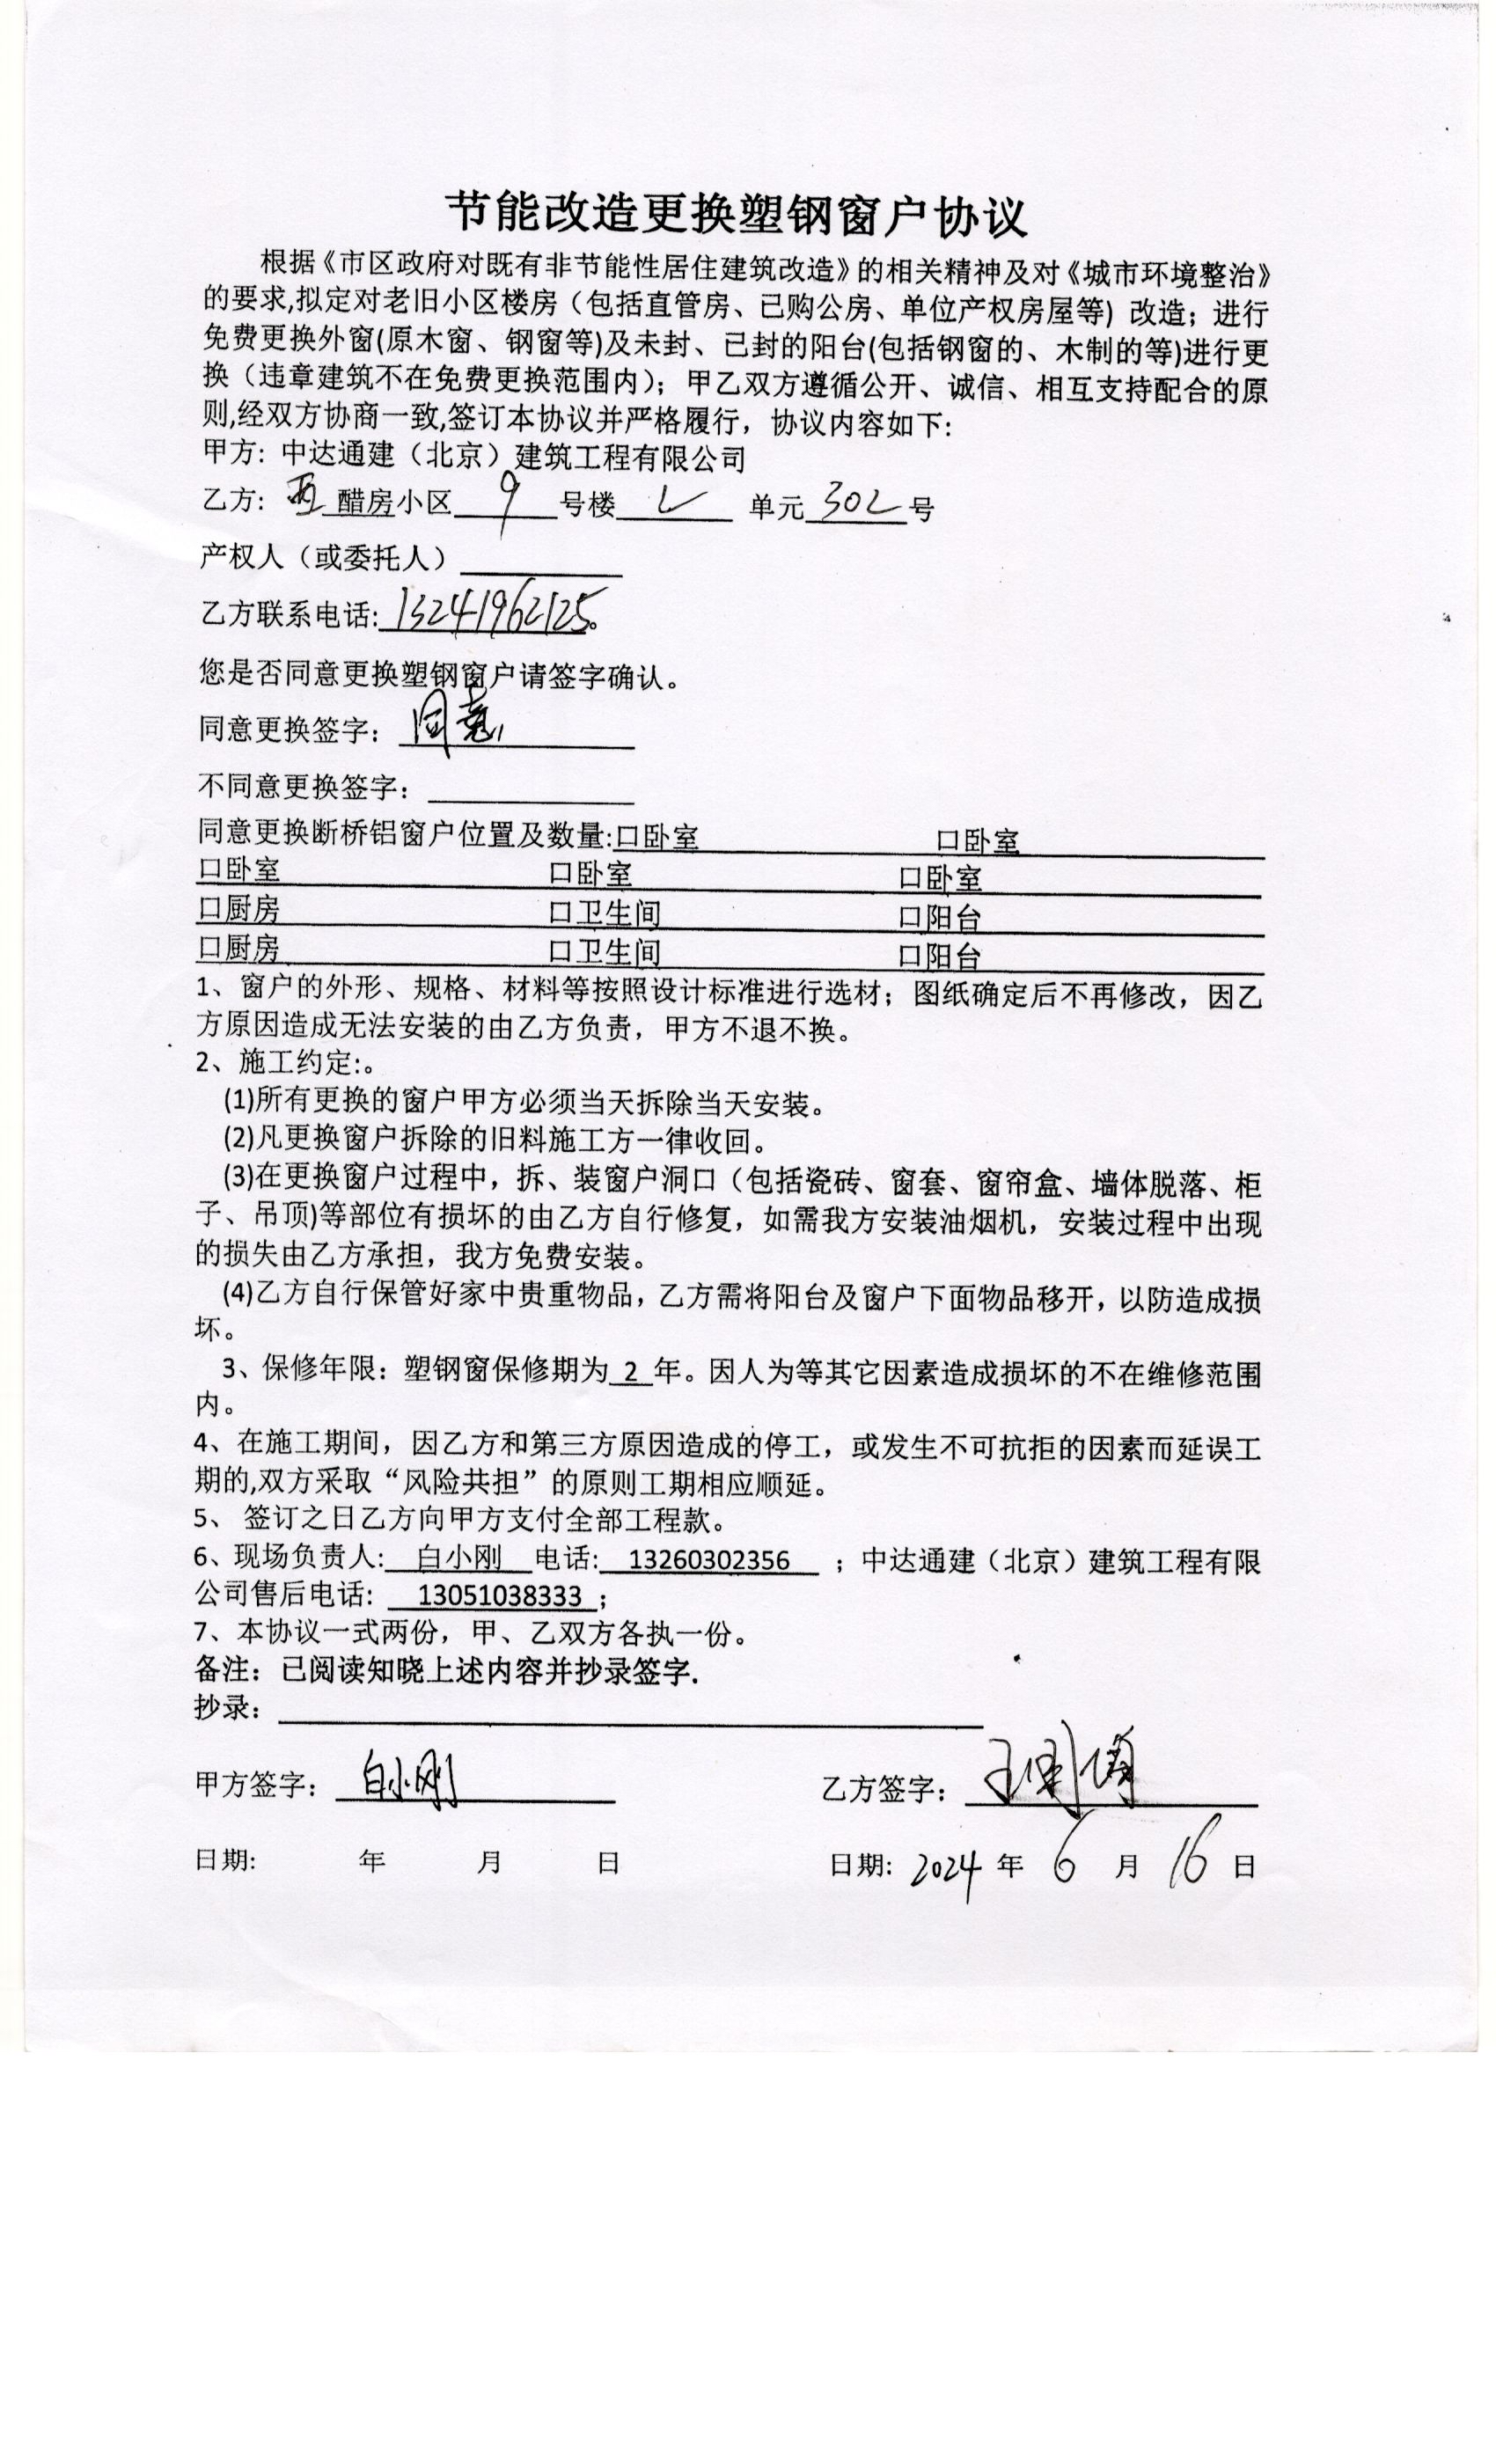 节能改造更换塑钢窗户协议
根据《市区政府对既有非节能性居住建筑改造》的相关精神及对《城市环境整治》
的要求,拟定对老旧小区楼房（包括直管房、已购公房、单位产权房屋等) 改造；进行
免费更换外窗(原木窗、钢窗等)及未封、已封的阳台(包括钢窗的、木制的等)进行更
换（违章建筑不在免费更换范围内）；甲乙双方遵循公开、诚信、相互支持配合的原
则,经双方协商一致,签订本协议并严格履行，协议内容如下：
甲方: 中达通建（北京）建筑工程有限公司
乙方: 西 醋房小区 9 号楼 2 单元 302 号
产权人（或委托人）
乙方联系电话: 13241962125。
您是否同意更换塑钢窗户请签字确认。
同意更换签字： 同意
不同意更换签字：
同意更换断桥铝窗户位置及数量:口卧室 口卧室
口卧室 口卧室 口卧室
口厨房 口卫生间 口阳台
口厨房 口卫生间 口阳台
1、窗户的外形、规格、材料等按照设计标准进行选材；图纸确定后不再修改，因乙
方原因造成无法安装的由乙方负责，甲方不退不换。
2、施工约定:。
(1)所有更换的窗户甲方必须当天拆除当天安装。
(2)凡更换窗户拆除的旧料施工方一律收回。
(3)在更换窗户过程中，拆、装窗户洞口（包括瓷砖、窗套、窗帘盒、墙体脱落、柜
子、吊顶)等部位有损坏的由乙方自行修复，如需我方安装油烟机，安装过程中出现
的损失由乙方承担，我方免费安装。
(4)乙方自行保管好家中贵重物品，乙方需将阳台及窗户下面物品移开，以防造成损
坏。
3、保修年限：塑钢窗保修期为 2 年。因人为等其它因素造成损坏的不在维修范围
内。
4、在施工期间，因乙方和第三方原因造成的停工，或发生不可抗拒的因素而延误工
期的,双方采取“风险共担”的原则工期相应顺延。
5、 签订之日乙方向甲方支付全部工程款。
6、现场负责人: 白小刚 电话: 13260302356 ；中达通建（北京）建筑工程有限
公司售后电话: 13051038333；
7、本协议一式两份，甲、乙双方各执一份。
备注：已阅读知晓上述内容并抄录签字.
抄录：
甲方签字： 白小刚 乙方签字： 王
日期: 年 月 日 日期: 2024 年 6 月 16 日